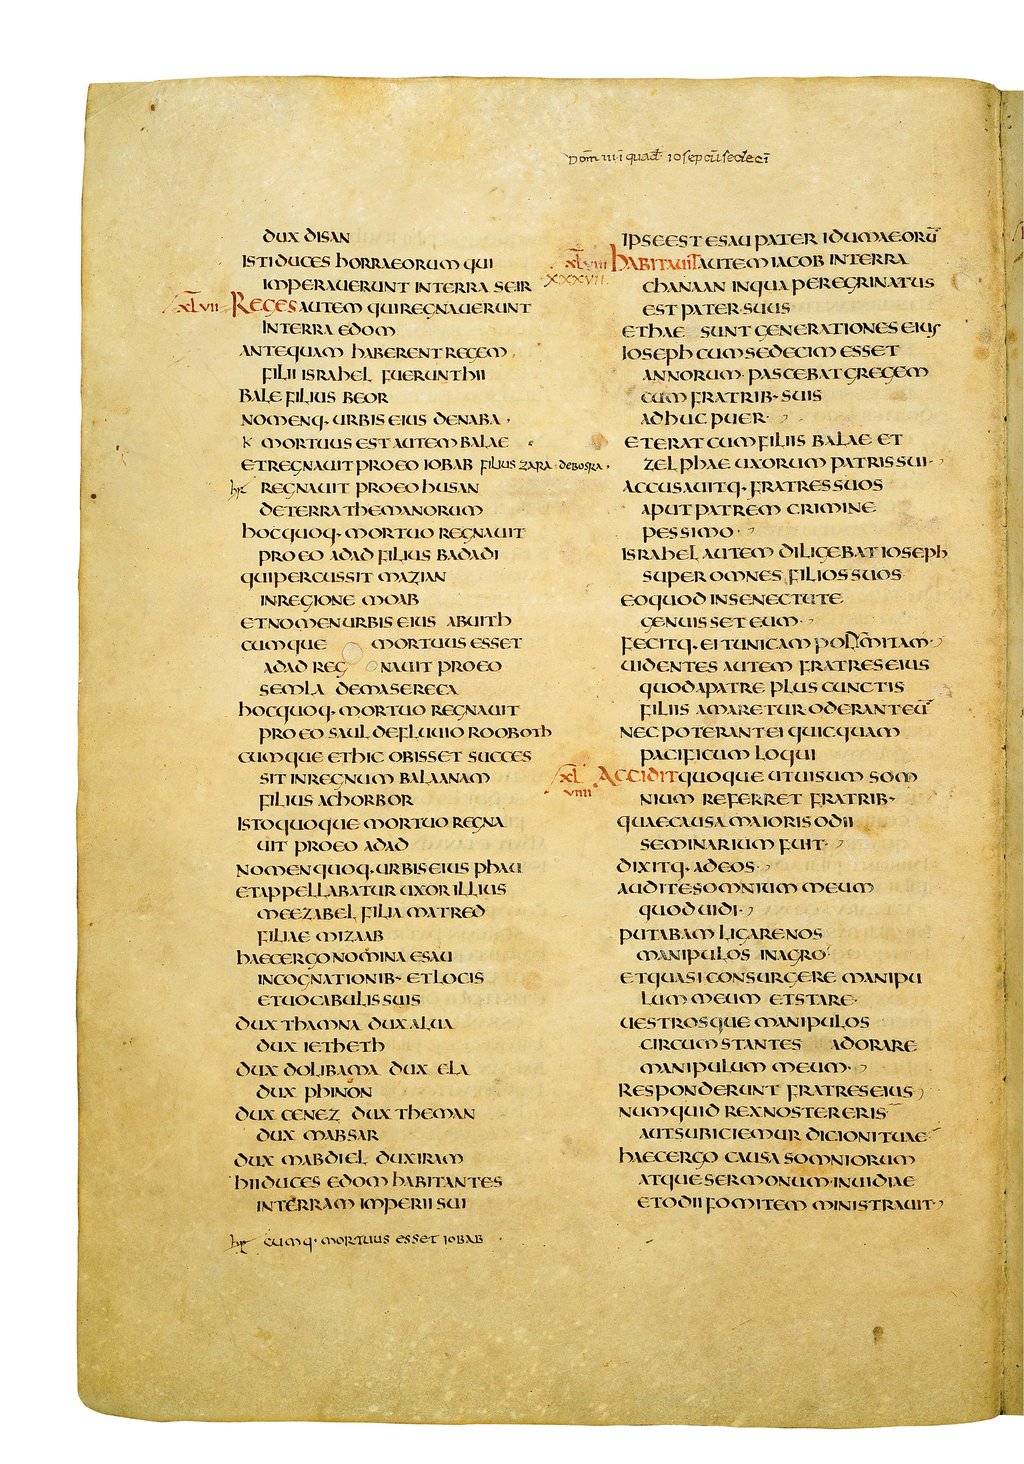 Dom̄ III ī quad̄ iosep cū sedeci
DUX DISAN
ISTI DUCES HORRAEORUM QUI
IMPERAVERUNT IN TERRA SEIR
XLVII REGES AUTEM QUI REGNAVERUNT
IN TERRA EDOM
ANTEQUAM HABERENT REGEM
FILII ISRAHEL FUERUNT HII
BALE FILIUS BEOR
NOMENQ· URBIS EIUS DENABA·
K MORTUUS EST AUTEM BALAE
ET REGNAVIT PRO EO IOBAB FILIUS ZARA DE BOSRA·
REGNAVIT PRO EO HUSAN
DE TERRA THEMANORUM
HOC QUOQ· MORTUO REGNAVIT
PRO EO ADAD FILIUS BADADI
QUI PERCUSSIT MAZIAN
IN REGIONE MOAB
ET NOMEN URBIS EIUS ABUITH
CUMQUE MORTUUS ESSET
ADAD REGNAVIT PRO EO
SEMLA DE MASERECA
HOC QUOQ· MORTUO REGNAVIT
PRO EO SAUL DE FLUUIO ROOBOTH
CUMQUE ET HIC OBISSET SUCCES
SIT IN REGNUM BALAANAM
FILIUS ACHORBOR
ISTO QUOQUE MORTUO REGNA
UIT PRO EO ADAD
NOMEN QUOQ· URBIS EIUS PHAU
ET APPELLABATUR UXOR ILLIUS
MEEZABEL FILIA MATRED
FILIAE MIZAAB
HAEC ERGO NOMINA ESAU
IN COGNATIONIB· ET LOCIS
ET UOCABULIS SUIS
DUX THAMNA DUX ALUA
DUX IETHETH
DUX OOLIBAMA DUX ELA
DUX PHINON
DUX CENEZ DUX THEMAN
DUX MABSAR
DUX MABDIEL DUX IRAM
HII DUCES EDOM HABITANTES
IN TERRAM IMPERII SUI
CUMQ· MORTUUS ESSET IOBAB
IPSE EST ESAU PATER IDUMAEORŪ
XLVIII HABITAUIT AUTEM IACOB IN TERRA
XXXVII. CHANAAN IN QUA PEREGRINATUS
EST PATER SUUS
ET HAE SUNT GENERATIONES EIUS
IOSEPH CUM SEDECIM ESSET
ANNORUM· PASCEBAT GREGEM
CUM FRATRIB· SUIS
ADHUC PUER·
ET ERAT CUM FILIIS BALAE ET
ZELPHAE UXORUM PATRIS SUI·
ACCUSAUITQ· FRATRES SUOS
APUT PATREM CRIMINE
PESSIMO·
ISRAHEL AUTEM DILIGEBAT IOSEPH
SUPER OMNES FILIOS SUOS
EO QUOD IN SENECTUTE
GENUISSET EUM·
FECITQ· EI TUNICAM POLYMITAM·
UIDENTES AUTEM FRATRES EIUS
QUOD A PATRE PLUS CUNCTIS
FILIIS AMARETUR ODERANT EŪ
NEC POTERANT EI QUICQUAM
PACIFICUM LOQUI
XLVIIII ACCIDIT QUOQUE UT UISUM SOM
NIUM REFERRET FRATRIB·
QUAE CAUSA MAIORIS ODII
SEMINARIUM FUIT·
DIXITQ· AD EOS·
AUDITE SOMNIUM MEUM
QUOD UIDI·
PUTABAM LIGARE NOS
MANIPULOS IN AGRO
ET QUASI CONSURGERE MANIPU
LUM MEUM ET STARE·
UESTROSQUE MANIPULOS
CIRCUMSTANTES ADORARE
MANIPULUM MEUM·
RESPONDERUNT FRATRES EIUS
NUMQUID REX NOSTER ERIS
AUT SUBICIEMUR DICIONI TUAE
HAEC ERGO CAUSA SOMNIORUM
ATQUE SERMONUM INUIDIAE
ET ODII FOMITEM MINISTRAUIT·